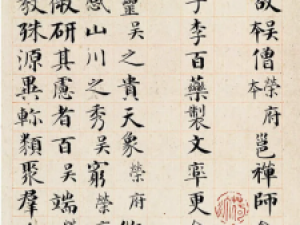 故吴本僧榮府邕禪師
子李百藥製文率更
靈吴之貴天象榮府
感山川之秀吴窮榮府
微研其慮者百吴端
教殊源異軫類聚羣